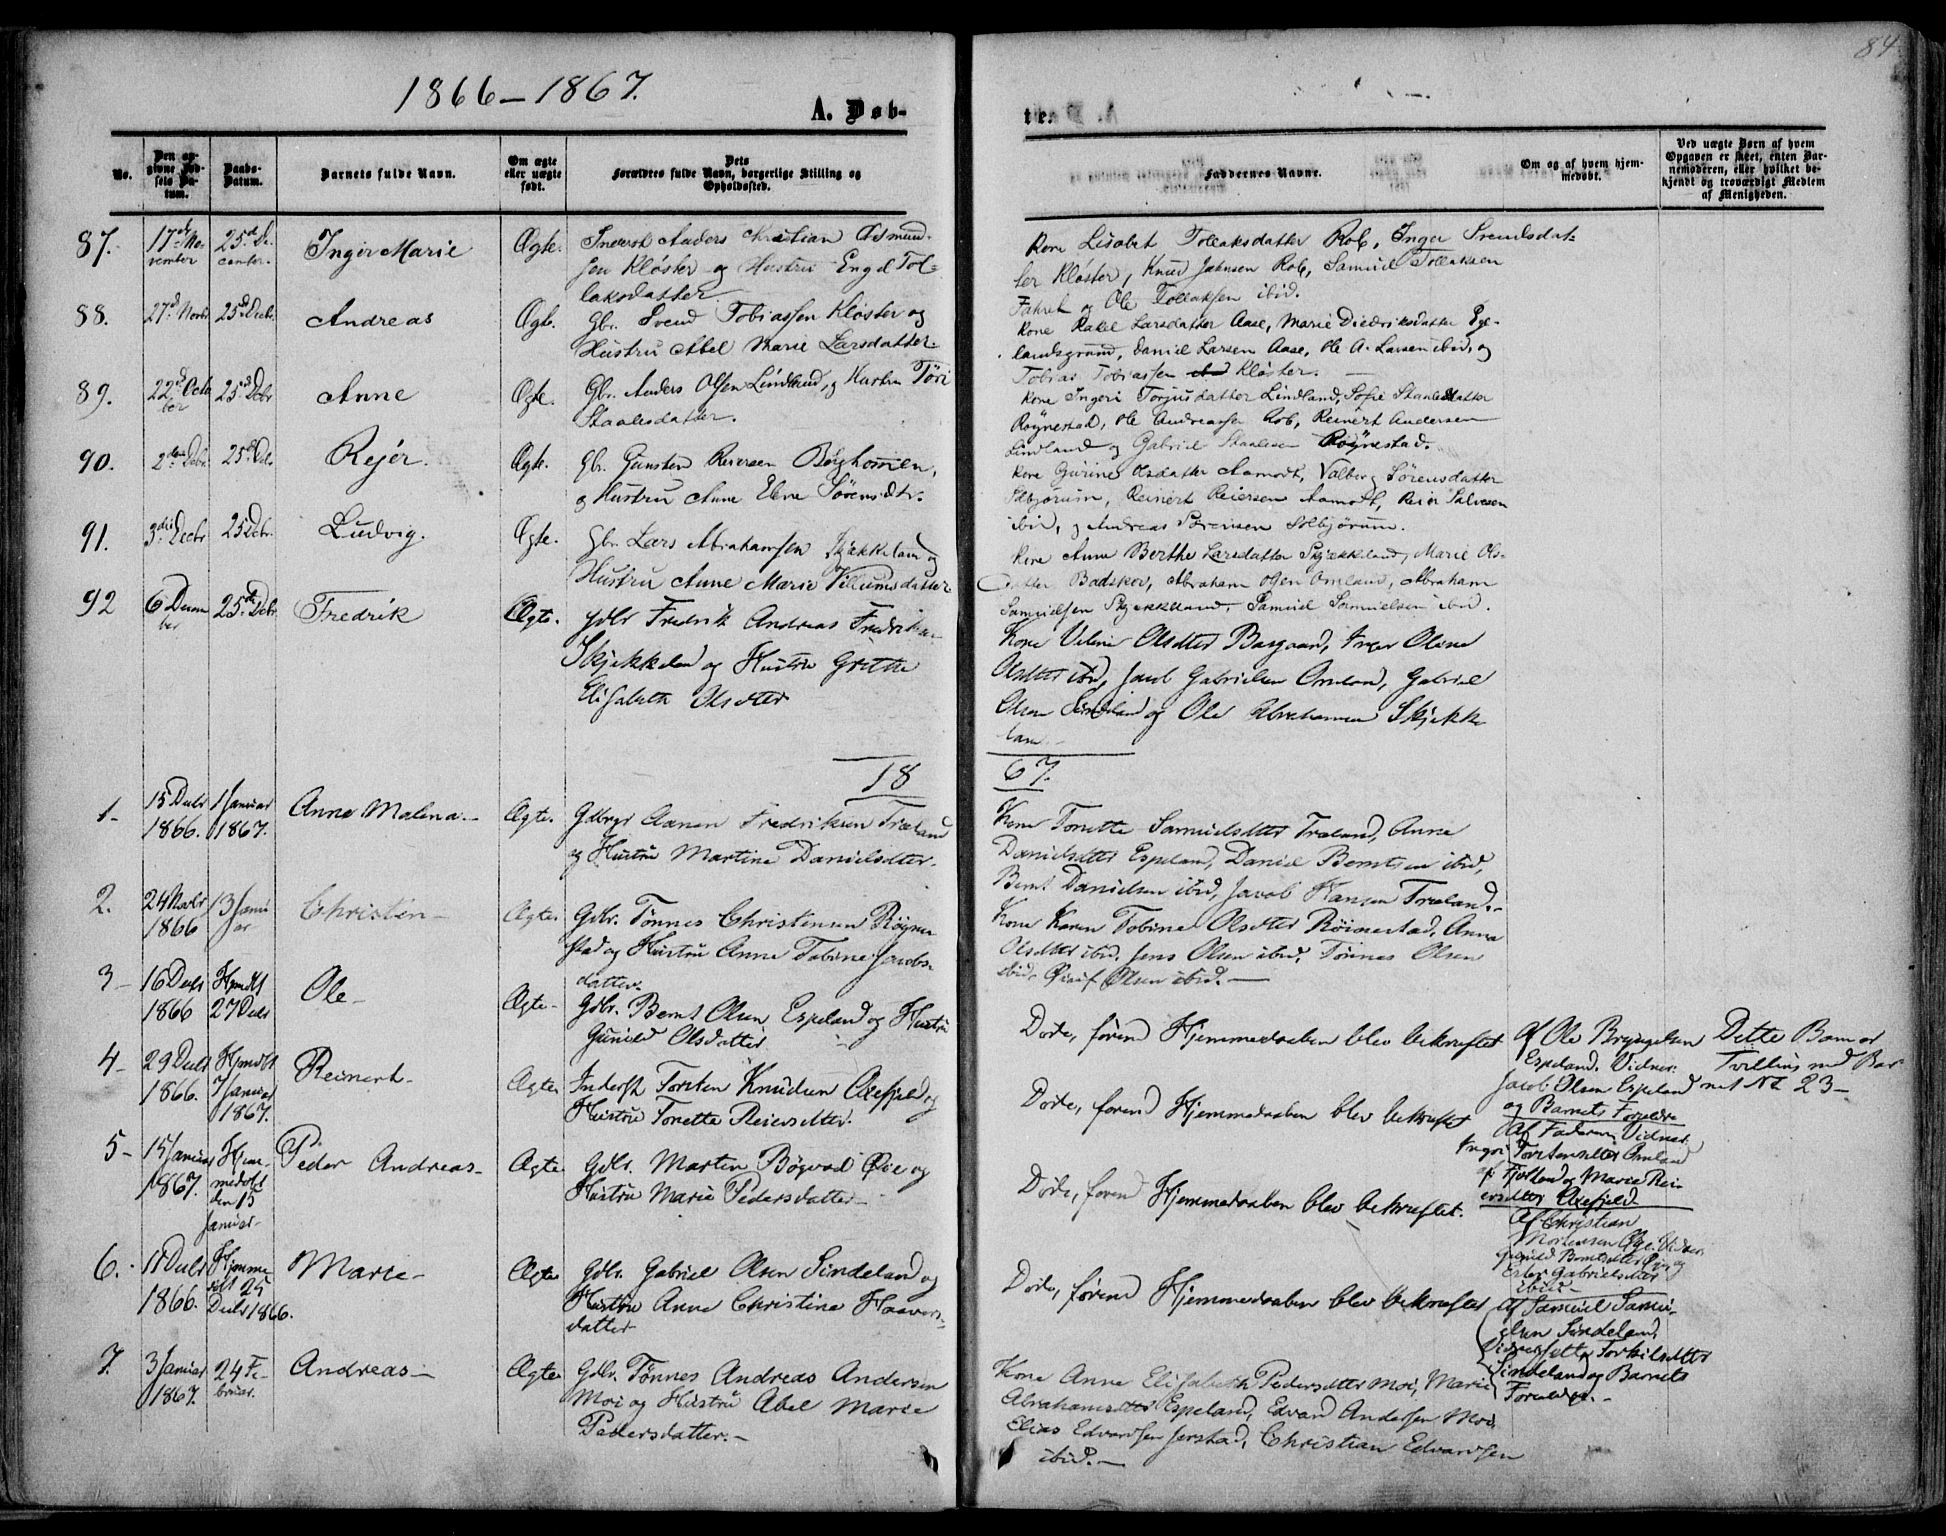 84
1866-1867.
A. Døb-
te.
No.
Den op-
givne Fød-
sels Da-
tum.
Daabs-
Datum.
Barnets fulde Navn.
Om ægte
eller uægte
født.
Dets
Forældres fulde Navn, borgerlige Stilling og
Opholdssted.
Faddernes Navne.
Om og af hvem hjem-
medøbt.
Ved uægte Børn af hvem
Opgaven er skeet, enten Bar-
nemoderen, eller hvilket be-
kjendt og troværdigt Medlem
af Menigheden.
87.
17de No-
vember
25d De-
cember.
Inger Marie
Ægte.
Inderst Anders Christian Asmund-
sen Kloster og Hustru Engel Tol-
laksdatter.
Kone Lisabet Tollaksdatter Rob, Inger Svendsdat-
ter Kloster, Knud Jahnsen Rob, Samuel Tollaksen
og Ole Tollaksen ibid.
88.
27d Novbr
25d Decbr.
Andreas
Ægte.
Gbr. Svend Tobiassen Kloster og
Hustru Abel Marie Larsdatter.
Kone Rakel Larsdatter Aase, Marie Diedriksdatter Ege-
landsgrund, Daniel Larsen Aase, Ole A. Larsen ibid, og
Tobias Tobiassen Kloster.
89.
22d Octo
ber
25d Dcbr
Anne
Ægte.
Gbr. Anders Olsen Lindland, og Hustru Töri
Staalesdatter.
Kone Ingeri Torjusdatter Lindland, Sofie Staalesdatter
Röynestad, Ole Andreassen Rob, Reinert Andersen
Lindland og Gabriel Staalesen Röynestad.
90.
2den Dcbr.
25d Dcbr.
Rejer.
Ægte.
Gbr. Gunsten Reiersen
og Hustru Anne Elene Sörensdtr.
Kone Gurine Olsdatter Aamodt, Valberg Sörensdatter
Reinert Reiersen Aamodt, Reier Salvesen
ibid, og Andreas Sörensen
91.
3die Decbr
25 Dcbr.
Ludvig.
Ægte.
Gbr. Lars Abrahamsen Skjækkeland og
Hustru Anne Marie Villumsdatter
Kone Anne Berthe Larsdatter Skjækkeland, Marie Ols-
datter Badskov, Abraham Olsen Omland, Abraham
Samuelsen Skjækkeland, Samuel Samuelsen ibid.
92
6 Decem
ber
25de Dcbr.
Fredrik
Ægte.
Gdbr Fredrik Andreas Fredriksen
Skjekkelan og Hustru Grethe
Elisabeth Olsdtter
Kone Olsdtter Basgaard, Inger Oline
Olsdtter ibid, Jacob Gabrielsen Omland, Gabriel
Olsen Sindeland og Ole Abrahamsen Skjekke
lan
18
67.
1-
15 Decbr
1866.
1 Januar
1867.
Anne Malena.-
Ægte.
Gdbrgr Aanen Fredriksen Træland
og Hustru Martine Danielsdtter.
Kone Tonette Samuelsdtter Træland, Anne
Danielsdtter Espeland, Daniel Berntsen ibid,
Bernt Danielsen ibid, Jacob Hansen Træland.-
2.
24 Novbr
1866
13 Janu
ar
Christen-
Ægte.
Gdbr. Tönnes Christensen Röyne-
stad og Hustru Anne Tobine Jacobs-
datter.
Kone Karen Tobine Olsdtter Röinestad, Anna
Olsdtter ibid, Jens Olsen ibid, Tönnes Olsen
ibid, Olsen ibid.-
3-
16 Decbr
1866
Hjmdbt
27 Decbr
Ole-
Ægte-
Gdbr. Bernt Olsen Espeland og Hustru
Gunild Olsdatter
Døde, førend Hjemmedaaben blev bekræftet
af Ole Bryngelsen
Espeland. Vidner:
Jacob Olsen Espeland
og Barnets Forældre
Dette Barn er
Tvilling med Bar
net No 23-
4-
29 Decbr
1866.
Hjmdbt
7 Januar
1867.
Reinert-
Ægte
Inderst Torsten Knudsen Øxefjeld og
Hustru Tonette Reiersdtter.
Døde, førend Hjemmedaaben blev bekræftet
Af Faderen, Vidner
Inger Torstensdtter Omland
af Fjotland og Marie Rei-
ersdtter Øxefjeld
5-
15 Januar
1867.
Hjem-
medøbt
den 15
Januar-
Peder Andreas-
Ægte
Gdbr. Martin Bögvad Øie og
Hustru Marie Pedersdatter-
Døde, førend Hjemmedaaben blev bekræftet.
Af Christian
Mortensen Øie. Vidner:
Gunild Berntsdtter Øie og
Ester Gabrielsdtter
ibid-
6.
11 Decbr
1866.
Hjemme
døbt 25
Decbr 1866.
Marie-
Ægte
Gdbr. Gabriel Olsen Sindeland og
Hustru Anne Christine Haavers-
datter
Døde, førend Hjemmedaaben blev bekræftet
af Samuel Samu-
elsen Sindeland.
Torkilsdtter
Sindeland og Barnets
Forældre.-
7.
3 Januar
1867.
24 Fe-
bruar.
Andreas-
Ægte
Gdbr. Tönnes Andreas Andersen
Moi og Hustru Abel Marie
Pedersdatter.-
Kone Anne Elisabeth Pedersdtter Moi, Marie
Abrahamsdtter Espeland, Edvard Andersen Moi,
Elias Edvardsen Jerstad, Christian Edvardsen
ibid.-